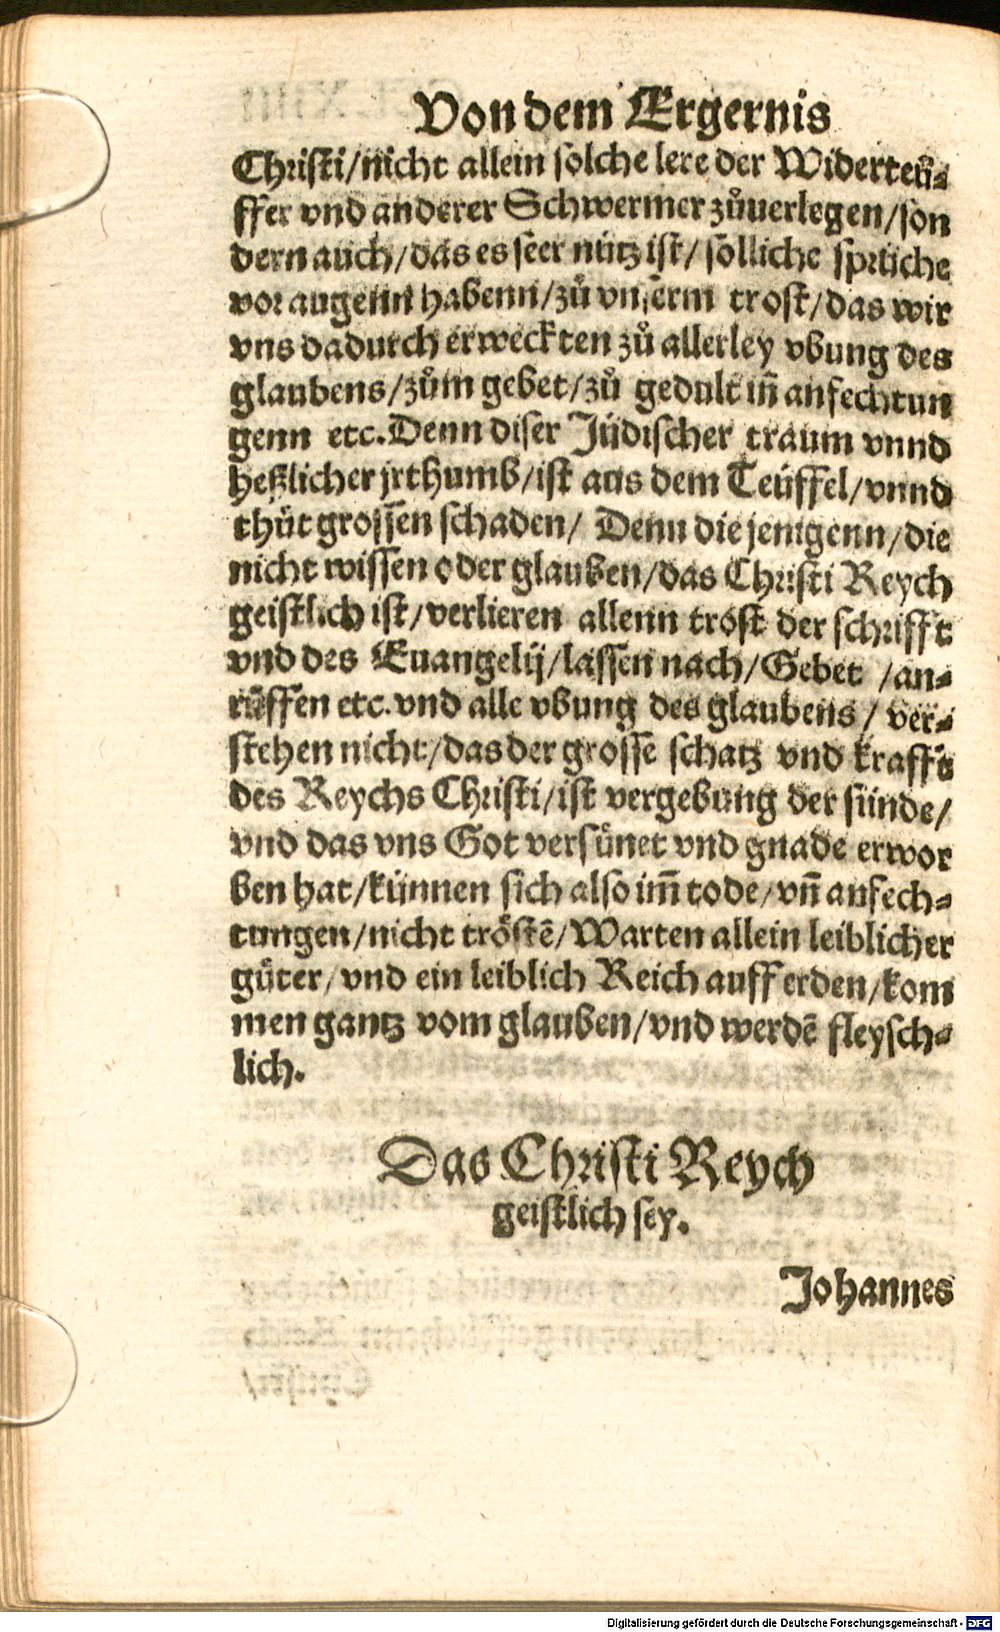 Von dem Ergernis
Christi/nicht allein solche lere der Widerteuͤ-
ffer vnd anderer Schwermer zuͦuerlegen/son
dern auch/das es seer nuͤtz ist/ soͤlliche spruͤche
vor augenn habenn/zuͦ vnserm trost/das wir
vns dadurch erweckten zuͦ allerley vbung des
glaubens/zuͦm gebet/zuͦ gedult in̄ anfechtun
genn etc. Denn diser Juͤdischer traum vnnd
heßlicher jrthumb/ist aus dem Teuͤffel/vnnd
thuͤt grossen schaden/ Denn die jenigenn/die
nicht wissen oder glauben/das Christi Reych
geistlich ist/verlieren allenn trost der schrifft
vnd des Euangelij/lassen nach/Gebet /an-
ruͤffen etc. vnd alle vbung des glaubens/ ver-
stehen nicht/das der grosse schatz vnd krafft
des Reychs Christi/ist vergebung der suͤnde/
vnd das vns Got versuͤnet vnd gnade erwor
ben hat/kuͤnnen sich also im̄ tode/vn̄ anfech-
tungen/nicht troͤstē/Warten allein leiblicher
guͤter/vnd ein leiblich Reich auff erden/kom
men gantz vom glauben/vnd werdē fleysch-
lich.
Das Christi Reych
geistlich sey.
Johannes
Digitalisierung gefördert durch die Deutsche Forschungsgemeinschaft - DFG